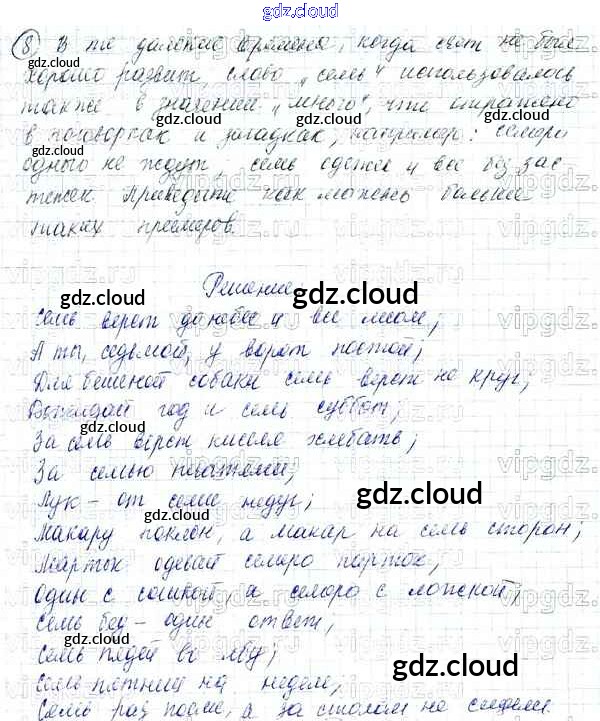 gdz.cloud
8) В те далекие времена, когда счёт не был
хорошо развит, слово „семь" использовалось
также в значении „много", что отражено
в поговорках и загадках, например: семеро
одного не ждут; семь одежек и все без зас
тежек. Приведите как можно больше
таких примеров.
Решение
Семь верст до небес и все лесом;
А ты, седьмой, у ворот постой;
Для бешеной собаки семь верст не круг;
год и семь суббот;
За семь вёрст киселя хлебать;
За семью печатями;
Лук – от семи недуг;
Макару поклон, а макар на семь сторон;
Марток одевай семеро порток;
один с сошкой, а семеро с ложкой;
Семь бед – один ответ;
Семь пядей во лбу;
Семь пятниц на неделе;
Семь раз а за столом не сидели
gdz.cloud
gdz.cloud
gdz.cloud
gdz.cloud
gdz.cloud
gdz.cloud
gdz.cloud
gdz.cloud
gdz.cloud
gdz.cloud
gdz.cloud
gdz.cloud
vipgdz.